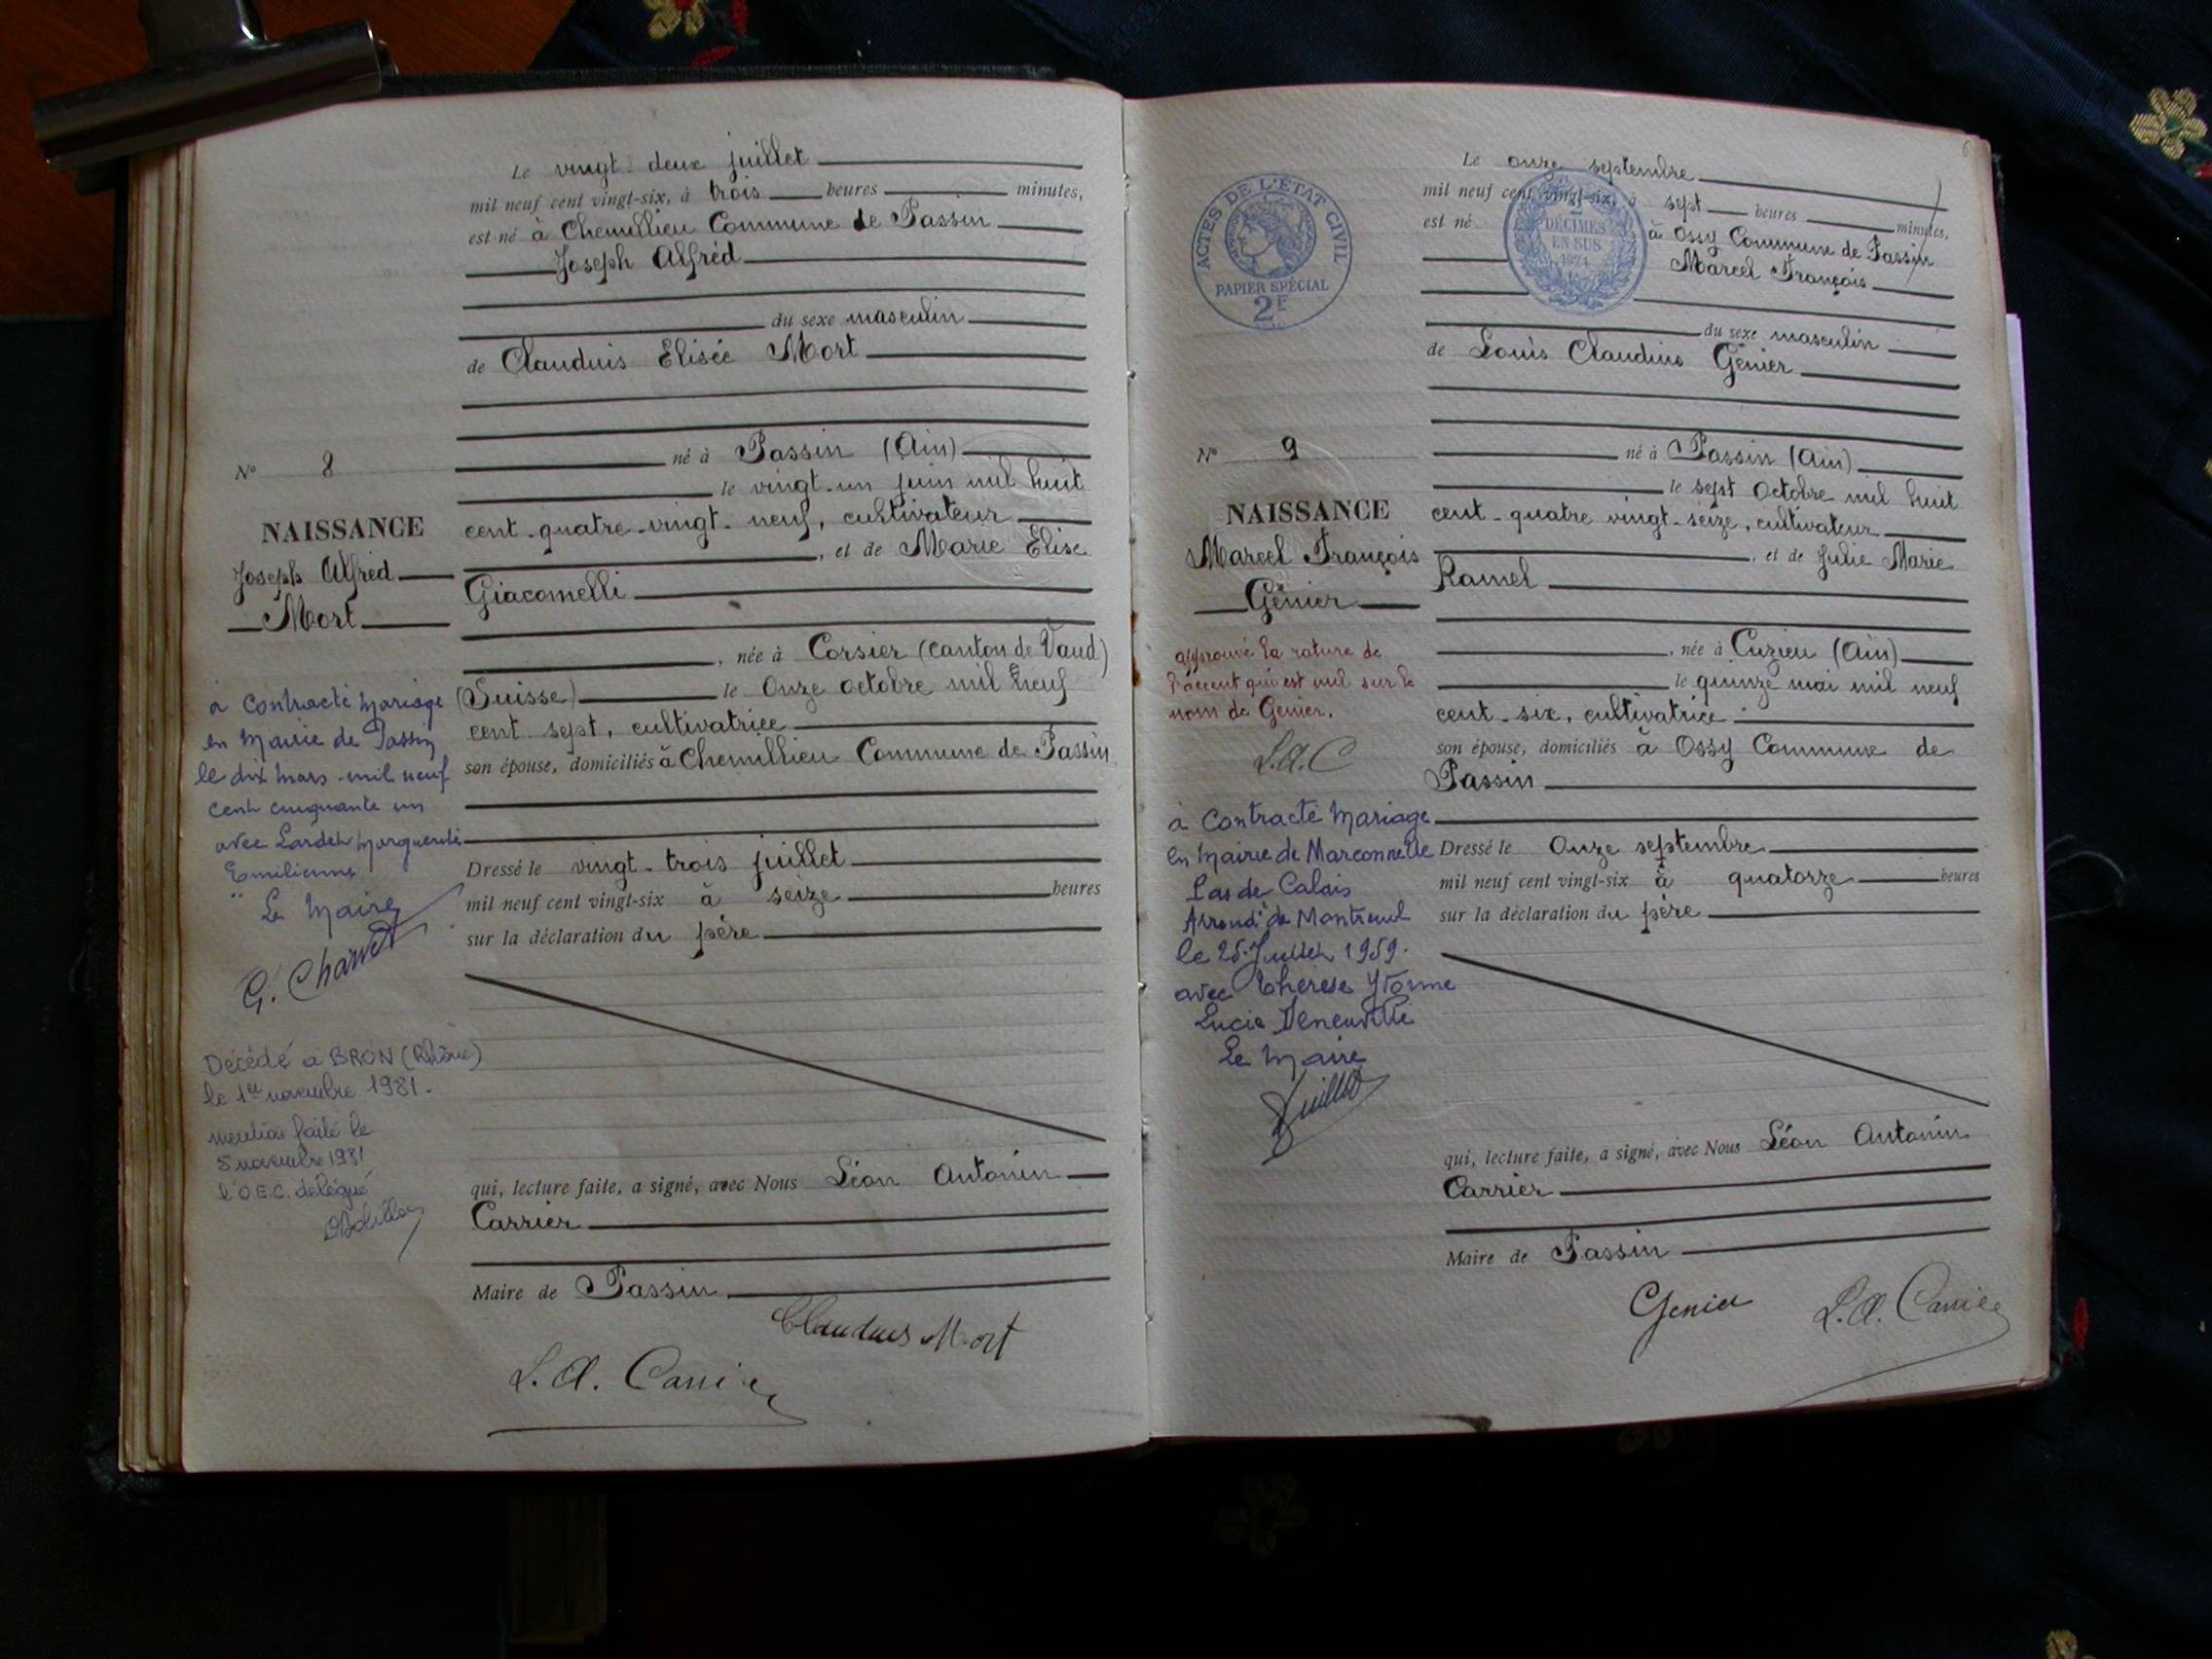 Le vingt-deux juillet
mil neuf cent vingt-six, à trois heures minutes,
est né à Chemillieu Commune de Passin
Joseph Alfred
du sexe masculin
de Claudius Elisée Mort
né à Passin (Ain)
le vingt-un juin mil huit
cent-quatre-vingt-neuf, cultivateur
, et de Marie Elise
Giacomelli
, née à Corsier (canton de Vaud)
(Suisse) le Onze octobre mil neuf
cent sept, cultivatrice
son épouse, domiciliés à Chemillieu Commune de Passin
Dressé le vingt-trois juillet
mil neuf cent vingt-six à seize heures
sur la déclaration du père
qui, lecture faite, a signé, avec Nous Léon Antonin
Carrier
Maire de Passin
Claudius Mort
L. A. Carrier
N° 8
NAISSANCE
Joseph Alfred
Mort
à Contracté Mariage
en Mairie de Passin
le dix Mars mil neuf
cent cinquante un
avec Marguerite
Emilienne
Le Maire
G. Charvet
Décédé à BRON (Rhône)
le 1er novembre 1981.
mention faite le
5 novembre 1981
l'O.E.C. délégué
6
Le onze septembre
mil neuf cent vingt-six, à sept heures minutes,
est né à Ossy Commune de Passin
Marcel François
du sexe masculin
de Louis Claudius Génier
né à Passin (Ain)
le sept Octobre mil huit
cent-quatre vingt-seize, cultivateur
, et de Julie Marie
Ramel
, née à Cuzieu (Ain)
le quinze mai mil neuf
cent-six, cultivatrice
son épouse, domiciliés à Ossy Commune de
Passin
Dressé le Onze septembre
mil neuf cent vingt-six à quatorze heures
sur la déclaration du père
qui, lecture faite, a signé, avec Nous Léon Antonin
Carrier
Maire de Passin
Genier L. A. Carrier
ACTES DE L'ÉTAT CIVIL
PAPIER SPÉCIAL
2F
2
DÉCIMES
EN SUS
1924
N° 9
NAISSANCE
Marcel François
Génier
approuvé la rature de
l'accent qui est nul sur le
nom de Genier.
L.A.C
à Contracté Mariage
en Mairie de Marconnelle
Pas de Calais
Arrond' de Montreuil
le 25 Juillet 1959.
avec Thérèse Yvonne
Lucie Deneuville
Le Maire